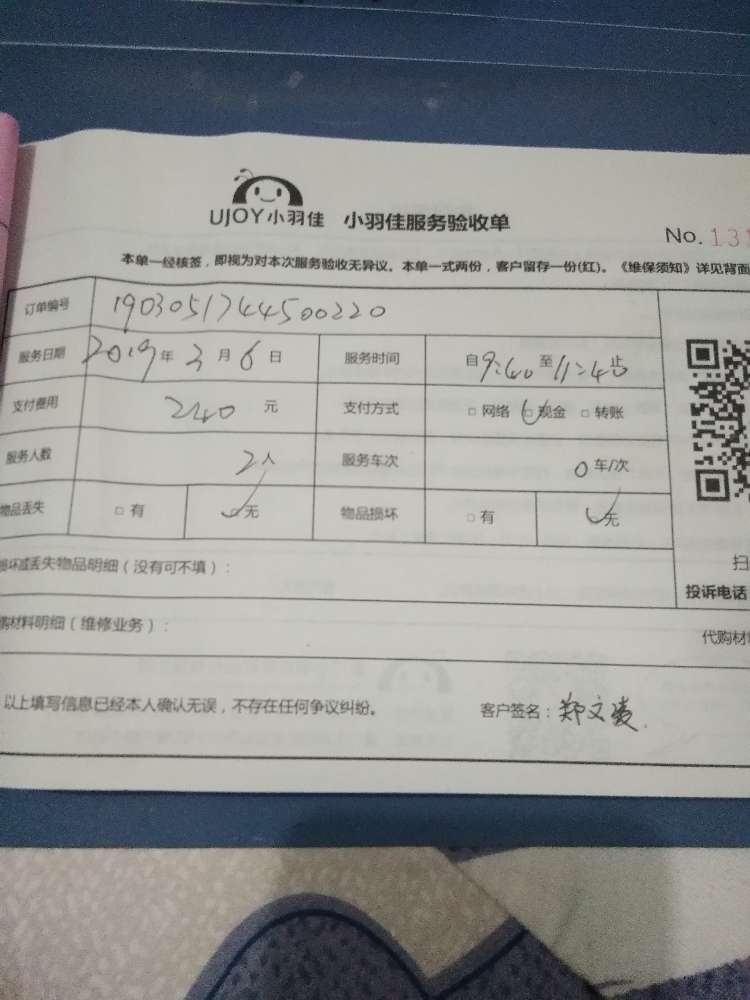 UJOY小羽佳 小羽佳服务验收单
No. 131
本单一经核签，即视为对本次服务验收无异议。本单一式两份，客户留存一份(红)。《维保须知》详见背面
订单编号 1903051744500220
服务日期 2019年3月6日 服务时间 自9:40至11:40止
支付费用 240元 支付方式 □网络 □现金 □转账
服务人数 2人 服务车次 0车/次
物品丢失 □有 □无 物品损坏 □有 □无
损坏或丢失物品明细（没有可不填）： 扫
投诉电话
购材料明细（维修业务）： 代购材
以上填写信息已经本人确认无误，不存在任何争议纠纷。 客户签名：郑文